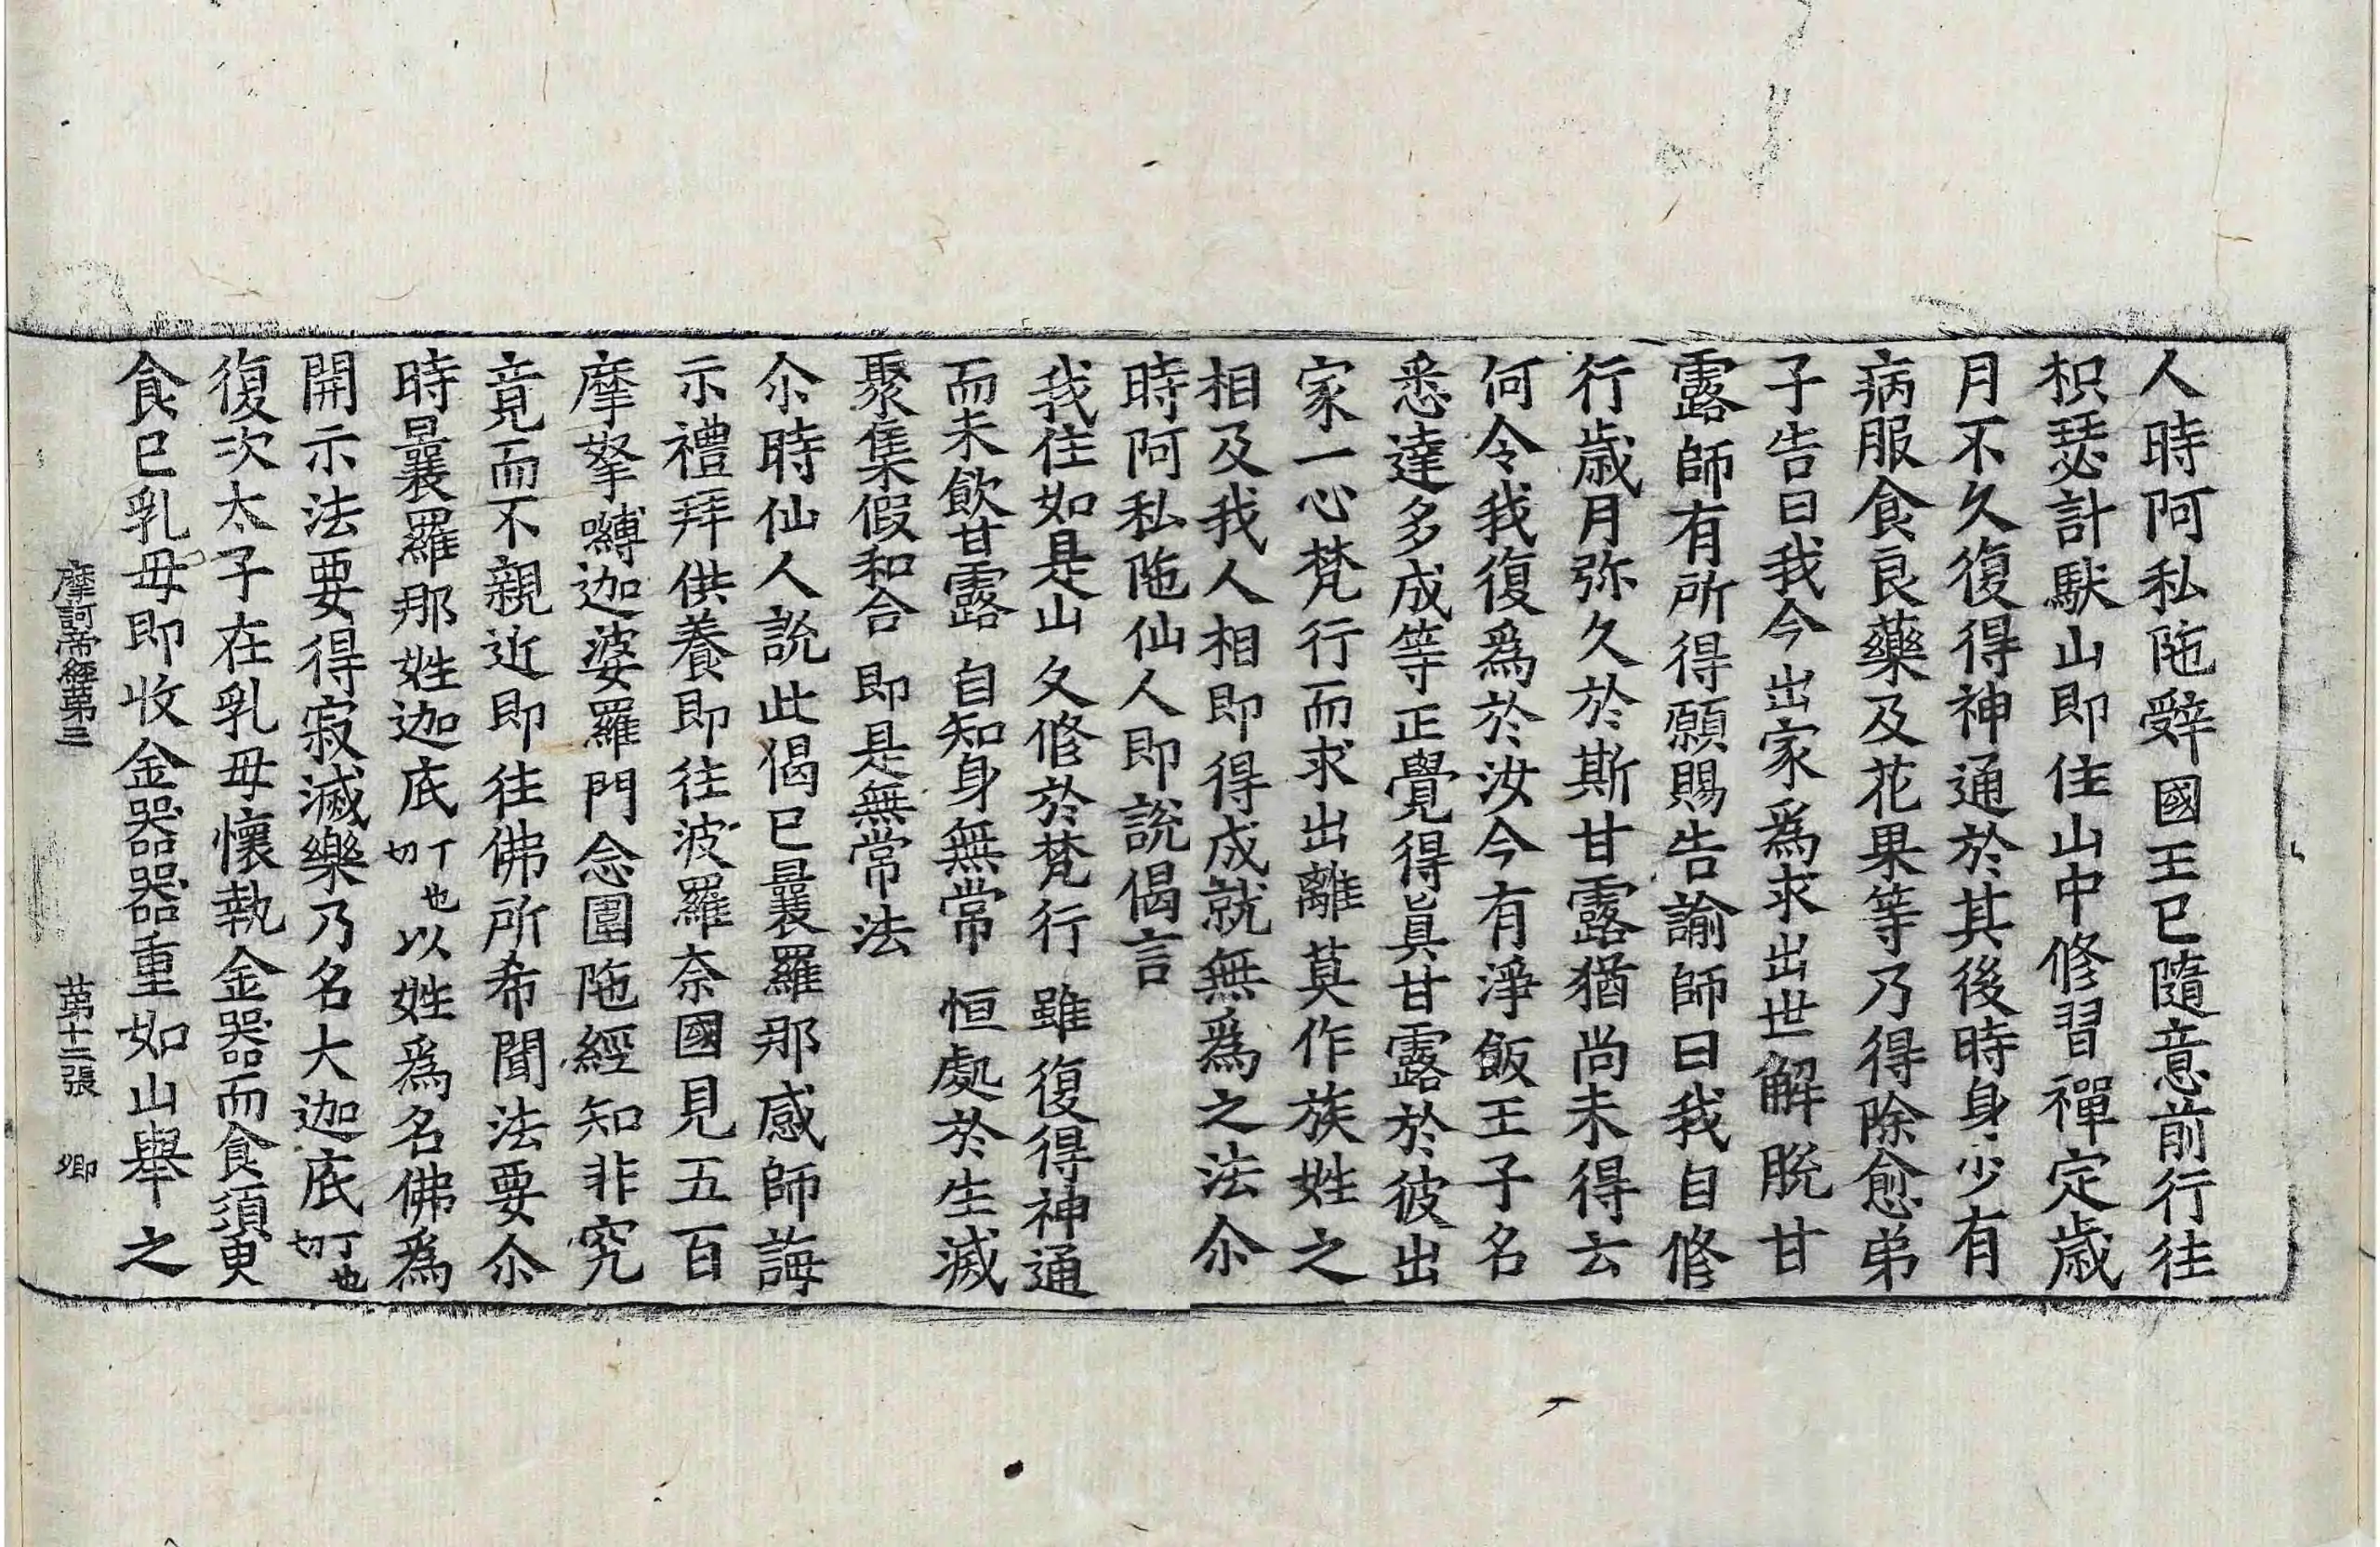 人時阿私陁辝國王已隨意前行往
枳瑟計駃山即住山中修習禪定歲
月不久復得神通於其後時身少有
病服食良藥及花果等乃得除愈弟
子告曰我今出家爲求出世解脫甘
露師有所得願賜告諭師曰我自修
行歲月弥久於斯甘露猶尚未得云
何令我復爲於汝今有淨飯王子名
悉達多成等正覺得眞甘露於彼出
家一心梵行而求出離莫作族姓之
相及我人相即得成就無爲之法尒
時阿私陁仙人即說偈言
我住如是山　久修於梵行　雖復得神通
而未飲甘露　自知身無常　恒處於生滅
聚集假和合　即是無常法
尒時仙人說此偈已曩羅那感師誨
示禮拜供養即往波羅奈國見五百
摩拏嚩迦婆羅門念圍陁經知非究
竟而不親近即往佛所希聞法要尒
時曩羅那姓迦底丁也切以姓爲名佛爲
開示法要得寂滅樂乃名大迦底丁也切
復次太子在乳母懷執金器而食須臾
食已乳母即收金器器重如山舉之
摩訶帝經第三　第十二張　卿